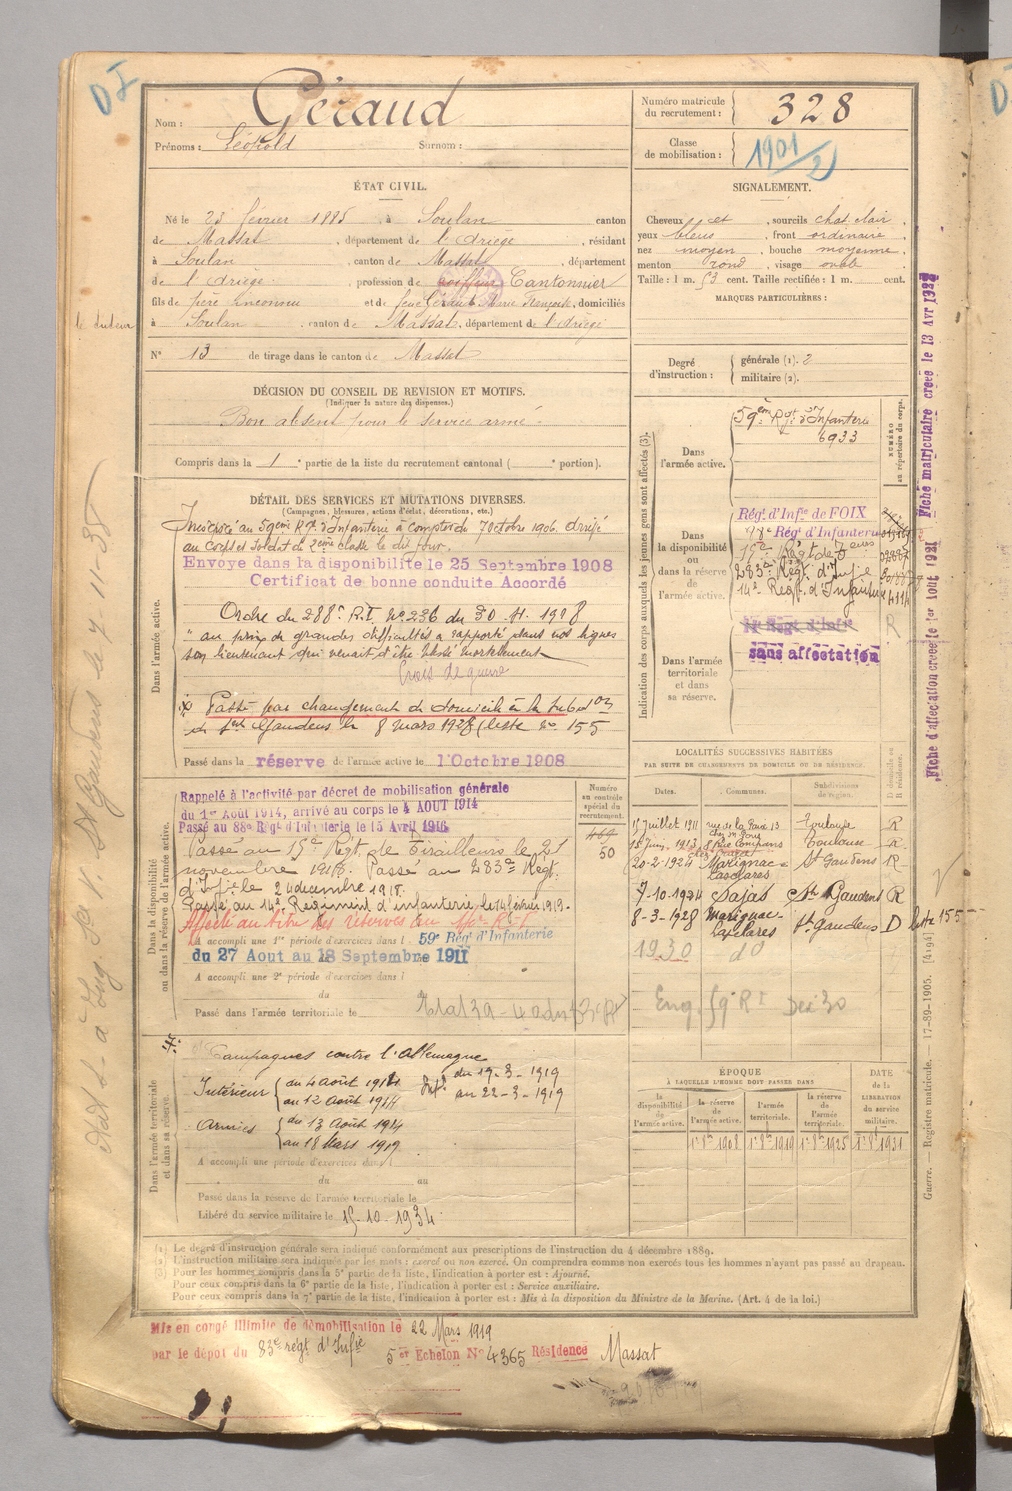 Nom : Géraud
Prénoms : Léopold Surnom :
Numéro matricule du recrutement : 328
Classe de mobilisation : 1901/2
ÉTAT CIVIL.
Né le 23 février 1885, à Soulan canton
de Massat, département de l'Ariège, résidant
à Soulan canton de Massat, département
de l'Ariège, profession de coiffeur Cantonnier
fils de père Inconnu et de feue Géraud Marie Françoise, domiciliés
à Soulan, canton de Massat, département de l'Ariège
le tuteur
N° 13 de tirage dans le canton de Massat
SIGNALEMENT.
Cheveux et, sourcils chat. clair,
yeux bleus, front ordinaire,
nez moyen, bouche moyenne,
menton rond, visage ovale
Taille : 1 m. 53 cent. Taille rectifiée : 1 m. cent.
MARQUES PARTICULIÈRES :
Degré d'instruction : générale (1). 2
militaire (2).
DÉCISION DU CONSEIL DE REVISION ET MOTIFS.
(Indiquer la nature des dispenses.)
Bon absent pour le service armé.
Compris dans la 1e partie de la liste du recrutement cantonal ( e portion).
DÉTAIL DES SERVICES ET MUTATIONS DIVERSES.
(Campagnes, blessures, actions d'éclat, décorations, etc.)
Dans l'armée active.
Incorporé au 59eme Rgt d'Infanterie à compter du 7 octobre 1906. Arrivé
au Corps et Soldat de 2eme classe le dit jour.
Envoyé dans la disponibilité le 25 Septembre 1908
Certificat de bonne conduite Accordé
Ordre du 288e R.I. N° 236 du 30. H. 1918
" au prix de grandes difficultés a rapporté dans nos lignes
son lieutenant qui venait d'être blessé mortellement
Croix de guerre
Passé par changement de domicile à la subdon
de St Gaudens le 8 mars 1928 (liste no 155
Passé dans la réserve de l'armée active le 1 Octobre 1908
Indication des corps auxquels les jeunes gens sont affectés (3).
NUMÉRO au répertoire du corps.
Dans l'armée active.
59ème Rgt d'Infanterie
6933
Dans la disponibilité ou dans la réserve de l'armée active.
Régt d'Infie de FOIX
Régt d'Infanterie
15e Régt de
283e Régt d'Infie
14e Régt d'Infanterie
R
Dans l'armée territoriale et dans sa réserve.
sans affectation
Dans la disponibilité ou dans la réserve de l'armée active.
Numéro au contrôle spécial du recrutement.
469
50
Rappelé à l'activité par décret de mobilisation générale
du 1er Août 1914, arrivé au corps le 4 AOUT 1914
Passé au 88e Régt d'Infanterie le 15 Avril 1916
Passé au 15e Régt de Tirailleurs le 21
novembre 1918. Passé au 283e Régt.
d'Infie le 24 décembre 1918.
Passé au 14e Régiment d'infanterie le 14 février 1919.
Affecté au titre des réserves au
A accompli une 1re période d'exercices dans l 59e Rég' d'Infanterie
du 27 Aout au 18 Septembre 1911
A accompli une 2e période d'exercices dans l
du au
Passé dans l'armée territoriale le
LOCALITÉS SUCCESSIVES HABITÉES
PAR SUITE DE CHANGEMENTS DE DOMICILE OU DE RÉSIDENCE.
Dates. Communes. Subdivisions de région. D domicile ou R résidence.
15 juillet 1911 rue de la Paix 13 Toulouse R
15 juin 1913 8 Rue Compans Toulouse R
20-2-1924 Marignac Lasclares St Gaudens R
7-10-1924 Sajas St Gaudens R
8-3-1928 Marignac Lasclares St Gaudens D liste 155
1930 do
Eng. 59 RI Dec 30
Dans l'armée territoriale et dans sa réserve.
Campagnes contre l'Allemagne
Intérieur du 4 août 1914 Intr du 19-3-1919
au 12 Août 1914 au 22-3-1919
Armées du 13 Août 1914
au 18 Mars 1919
A accompli une période d'exercices dans l
du au
Passé dans la réserve de l'armée territoriale le
Libéré du service militaire le 15-10-1934
ÉPOQUE
À LAQUELLE L'HOMME DOIT PASSER DANS
la disponibilité de l'armée active. la réserve de l'armée active. l'armée territoriale. la réserve de l'armée territoriale. DATE de la LIBÉRATION du service militaire.
1er 8bre 1908 1er 8bre 1919 1er 8bre 1925 1er 8bre 1931
(1) Le degré d'instruction générale sera indiqué conformément aux prescriptions de l'instruction du 4 décembre 1889.
(2) L'instruction militaire sera indiquée par les mots : exercé ou non exercé. On comprendra comme non exercés tous les hommes n'ayant pas passé au drapeau.
(3) Pour les hommes compris dans la 5e partie de la liste, l'indication à porter est : Ajourné.
Pour ceux compris dans la 6e partie de la liste, l'indication à porter est : Service auxiliaire.
Pour ceux compris dans la 7e partie de la liste, l'indication à porter est : Mis à la disposition du Ministre de la Marine. (Art. 4 de la loi.)
Mis en congé illimité de démobilisation le 22 Mars 1919
par le dépôt du 83e régt d'Infie 5er Echelon N° 4365 Résidence Massat
Fiche d'affectation créée le 1er Août 1921 Fiche matriculaire créée le 13 Avr
Guerre. — Registre matricule. — 17-89-1905. [4194]
St Gaudens le 7-1-38